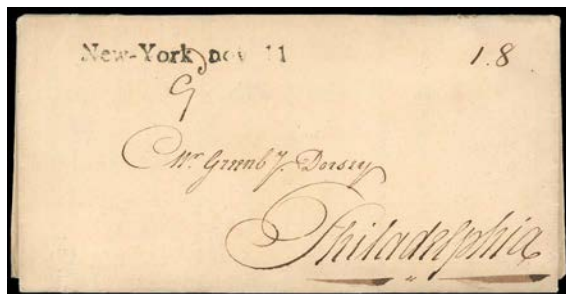 New-York nov 11 1.8
Mr. Greenb. Y. Dorsey
Philadelphia